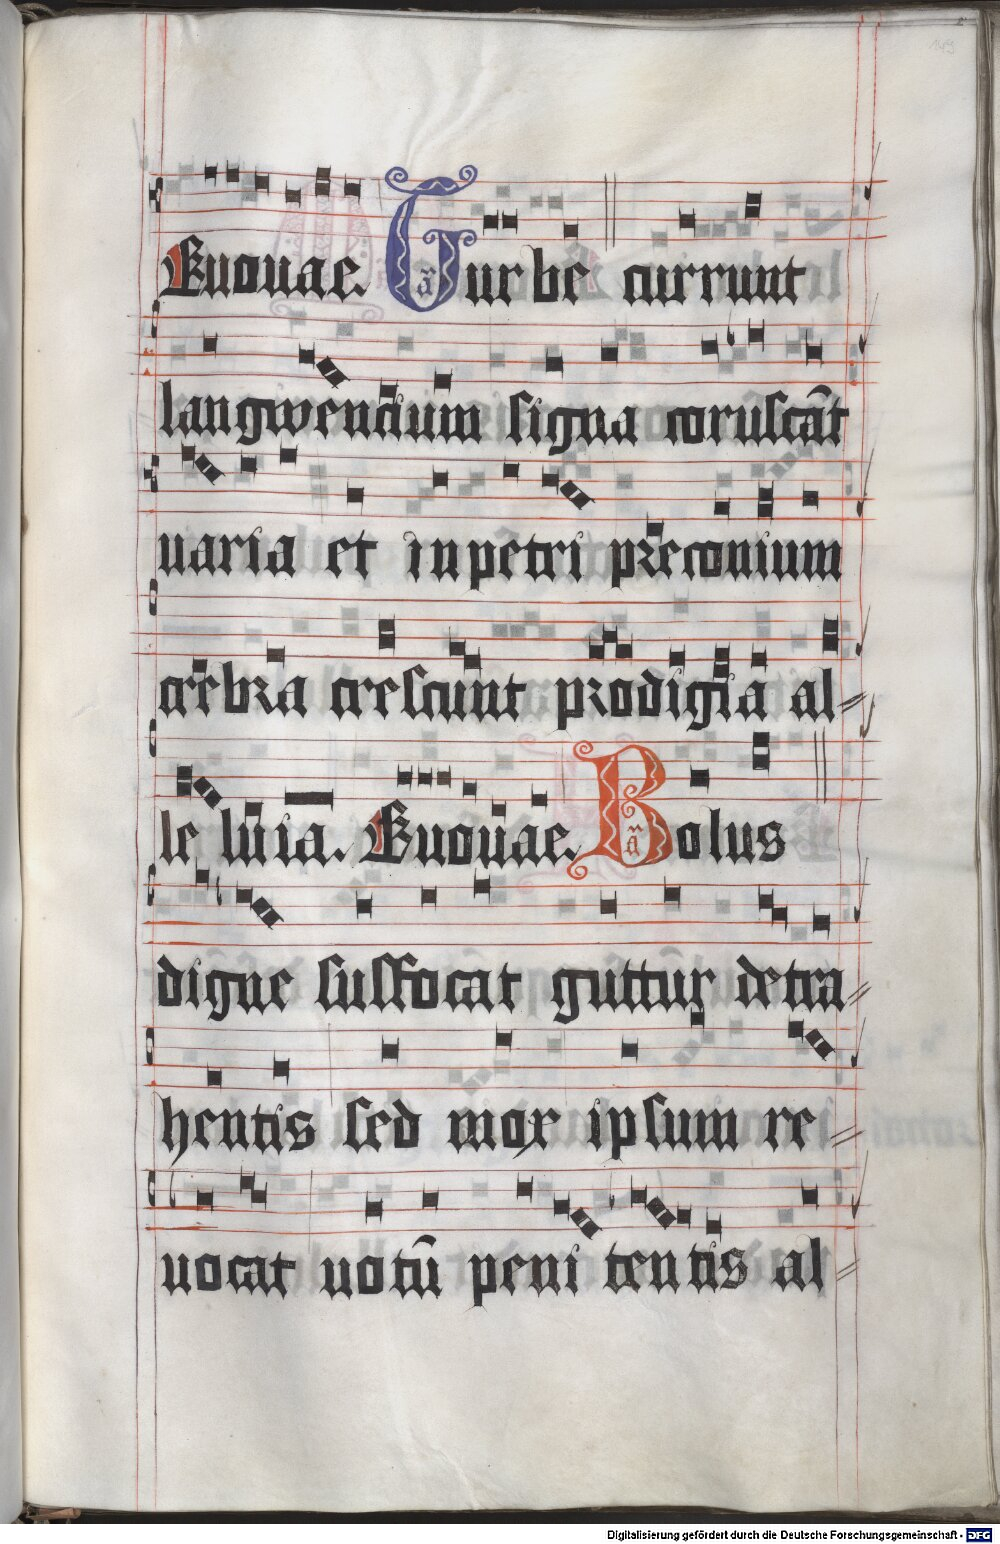 149
Euouae. T añ urbe currunt
langwencium signa coruscāt
uaria et in petri preconium
crebra crescunt prodigia al=
le luia. Euouae. B añ olus
digne suffocat guttur detra=
hentis sed mox ipsum re=
uocat uotū peni tentis al=
Digitalisierung gefördert durch die Deutsche Forschungsgemeinschaft - DFG